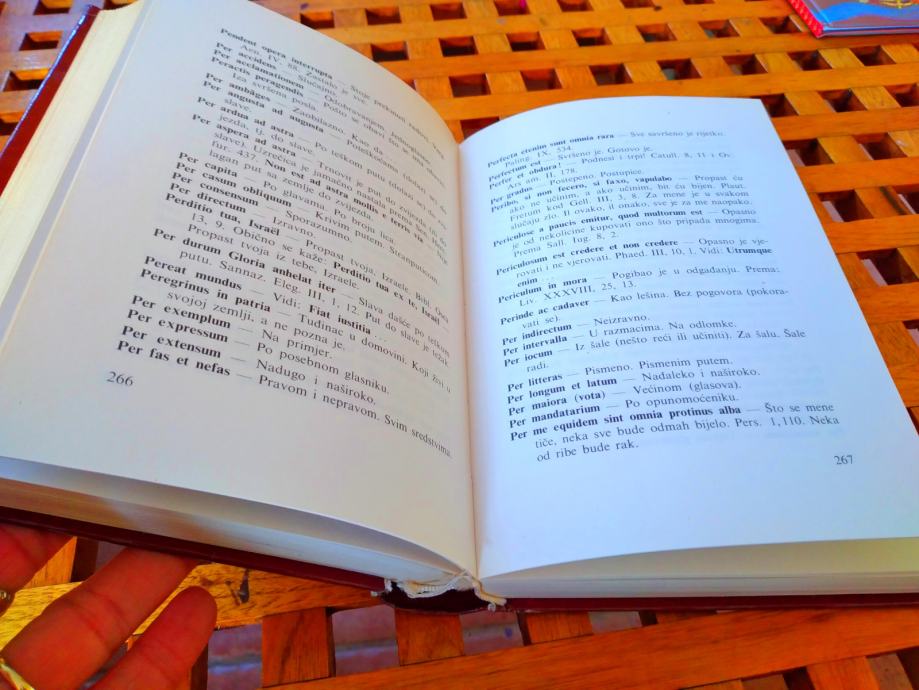 Pendent opera interrupta — Stoje prekinuti radovi. Verg.
Aen. IV. 88. Zastalo je sve.
Per accidens — Slučajno.
Per acclamationem — Odobravanjem. Jednoglasno.
Peractis peragendis — Pošto se obavi što se ima obaviti.
Iza svršena posla.
Per ambāges — Zaobilazno. Kao, da
Per angusta ad augusta — Poteškoćama (dolazi se) do
slave.
Per ardua ad astra — Po teškom putu do
jezda, tj. do slave.
Per aspera ad astra — Trnovit je put do zvijezda, tj. do
slave). Uzrečica je jamačno nastala prema: Sen. Herc.
fur. 437. Non est ad astra mollis e terris via — Nije
lagan put sa zemlje do zvijezda.
Per capita — Po glavama. Po broju lica.
Per casum obliquum — Krivim putem.
Per consensum — Sporazumno.
Per directum — Izravno.
Perditio tua, Israël — Propast tvoja, Izraele. Bibl. Osea
13, 9. Obično se kaže: Perditio tua ex te, Israël —
Propast tvoja iz tebe, Izraele.
Per durum Gloria anhelat iter — Slava dašće po teškom
putu. Sannaz. Eleg. III, 1, 12. Put do slave je težak.
Pereat mundus — Vidi: Fiat iustitia
Peregrinus in patria — Tuđinac u domovini. Koji živi u
svojoj zemlji, a ne pozna je.
Per exemplum — Na primjer.
Per expressum — Po posebnom glasniku.
Per extensum — Nadugo i naširoko.
Per fas et nefas — Pravom i nepravom. Svim sredstvima.
266
Perfecta etenim sunt omnia rara — Sve savršeno je rijetko.
Paling. IX, 534.
Perfectum est — Svršeno je. Gotovo je.
Perfer et obdura! — Podnesi i trpi! Catull. 8, 11 i Ov.
Ars am. II, 178.
Per gradus — Postepeno. Postupice.
Peribo, si non fecero, si faxo, vapulabo — Propast ću
ako ne učinim, a ako učinim, bit ću bijen. Plaut.
Fretum kod Gell. III, 3, 8. Za mene je u svakom
slučaju zlo. Il ovako, il onako, sve je za me naopako.
Periculose a paucis emitur, quod multorum est — Opasno
je od nekolicine kupovati ono što pripada mnogima.
Prema Sall. Iug. 8, 2.
Periculosum est credere et non credere — Opasno je vje-
rovati i ne vjerovati. Phaed. III, 10, 1. Vidi: Utrumque
enim . . .
Periculum in mora — Pogibao je u odgađanju. Prema:
Liv. XXXVIII, 25, 13.
Perinde ac cadaver — Kao lešina. Bez pogovora (pokora-
vati se).
Per indirectum — Neizravno.
Per intervalla — U razmacima. Na odlomke.
Per iocum — Iz šale (nešto reći ili učiniti). Za šalu. Šale
radi.
Per litteras — Pismeno. Pismenim putem.
Per longum et latum — Nadaleko i naširoko.
Per maiora (vota) — Većinom (glasova).
Per mandatarium — Po opunomoćeniku.
Per me equidem sint omnia protinus alba — Što se mene
tiče, neka sve bude odmah bijelo. Pers. 1,110. Neka
od ribe bude rak.
267